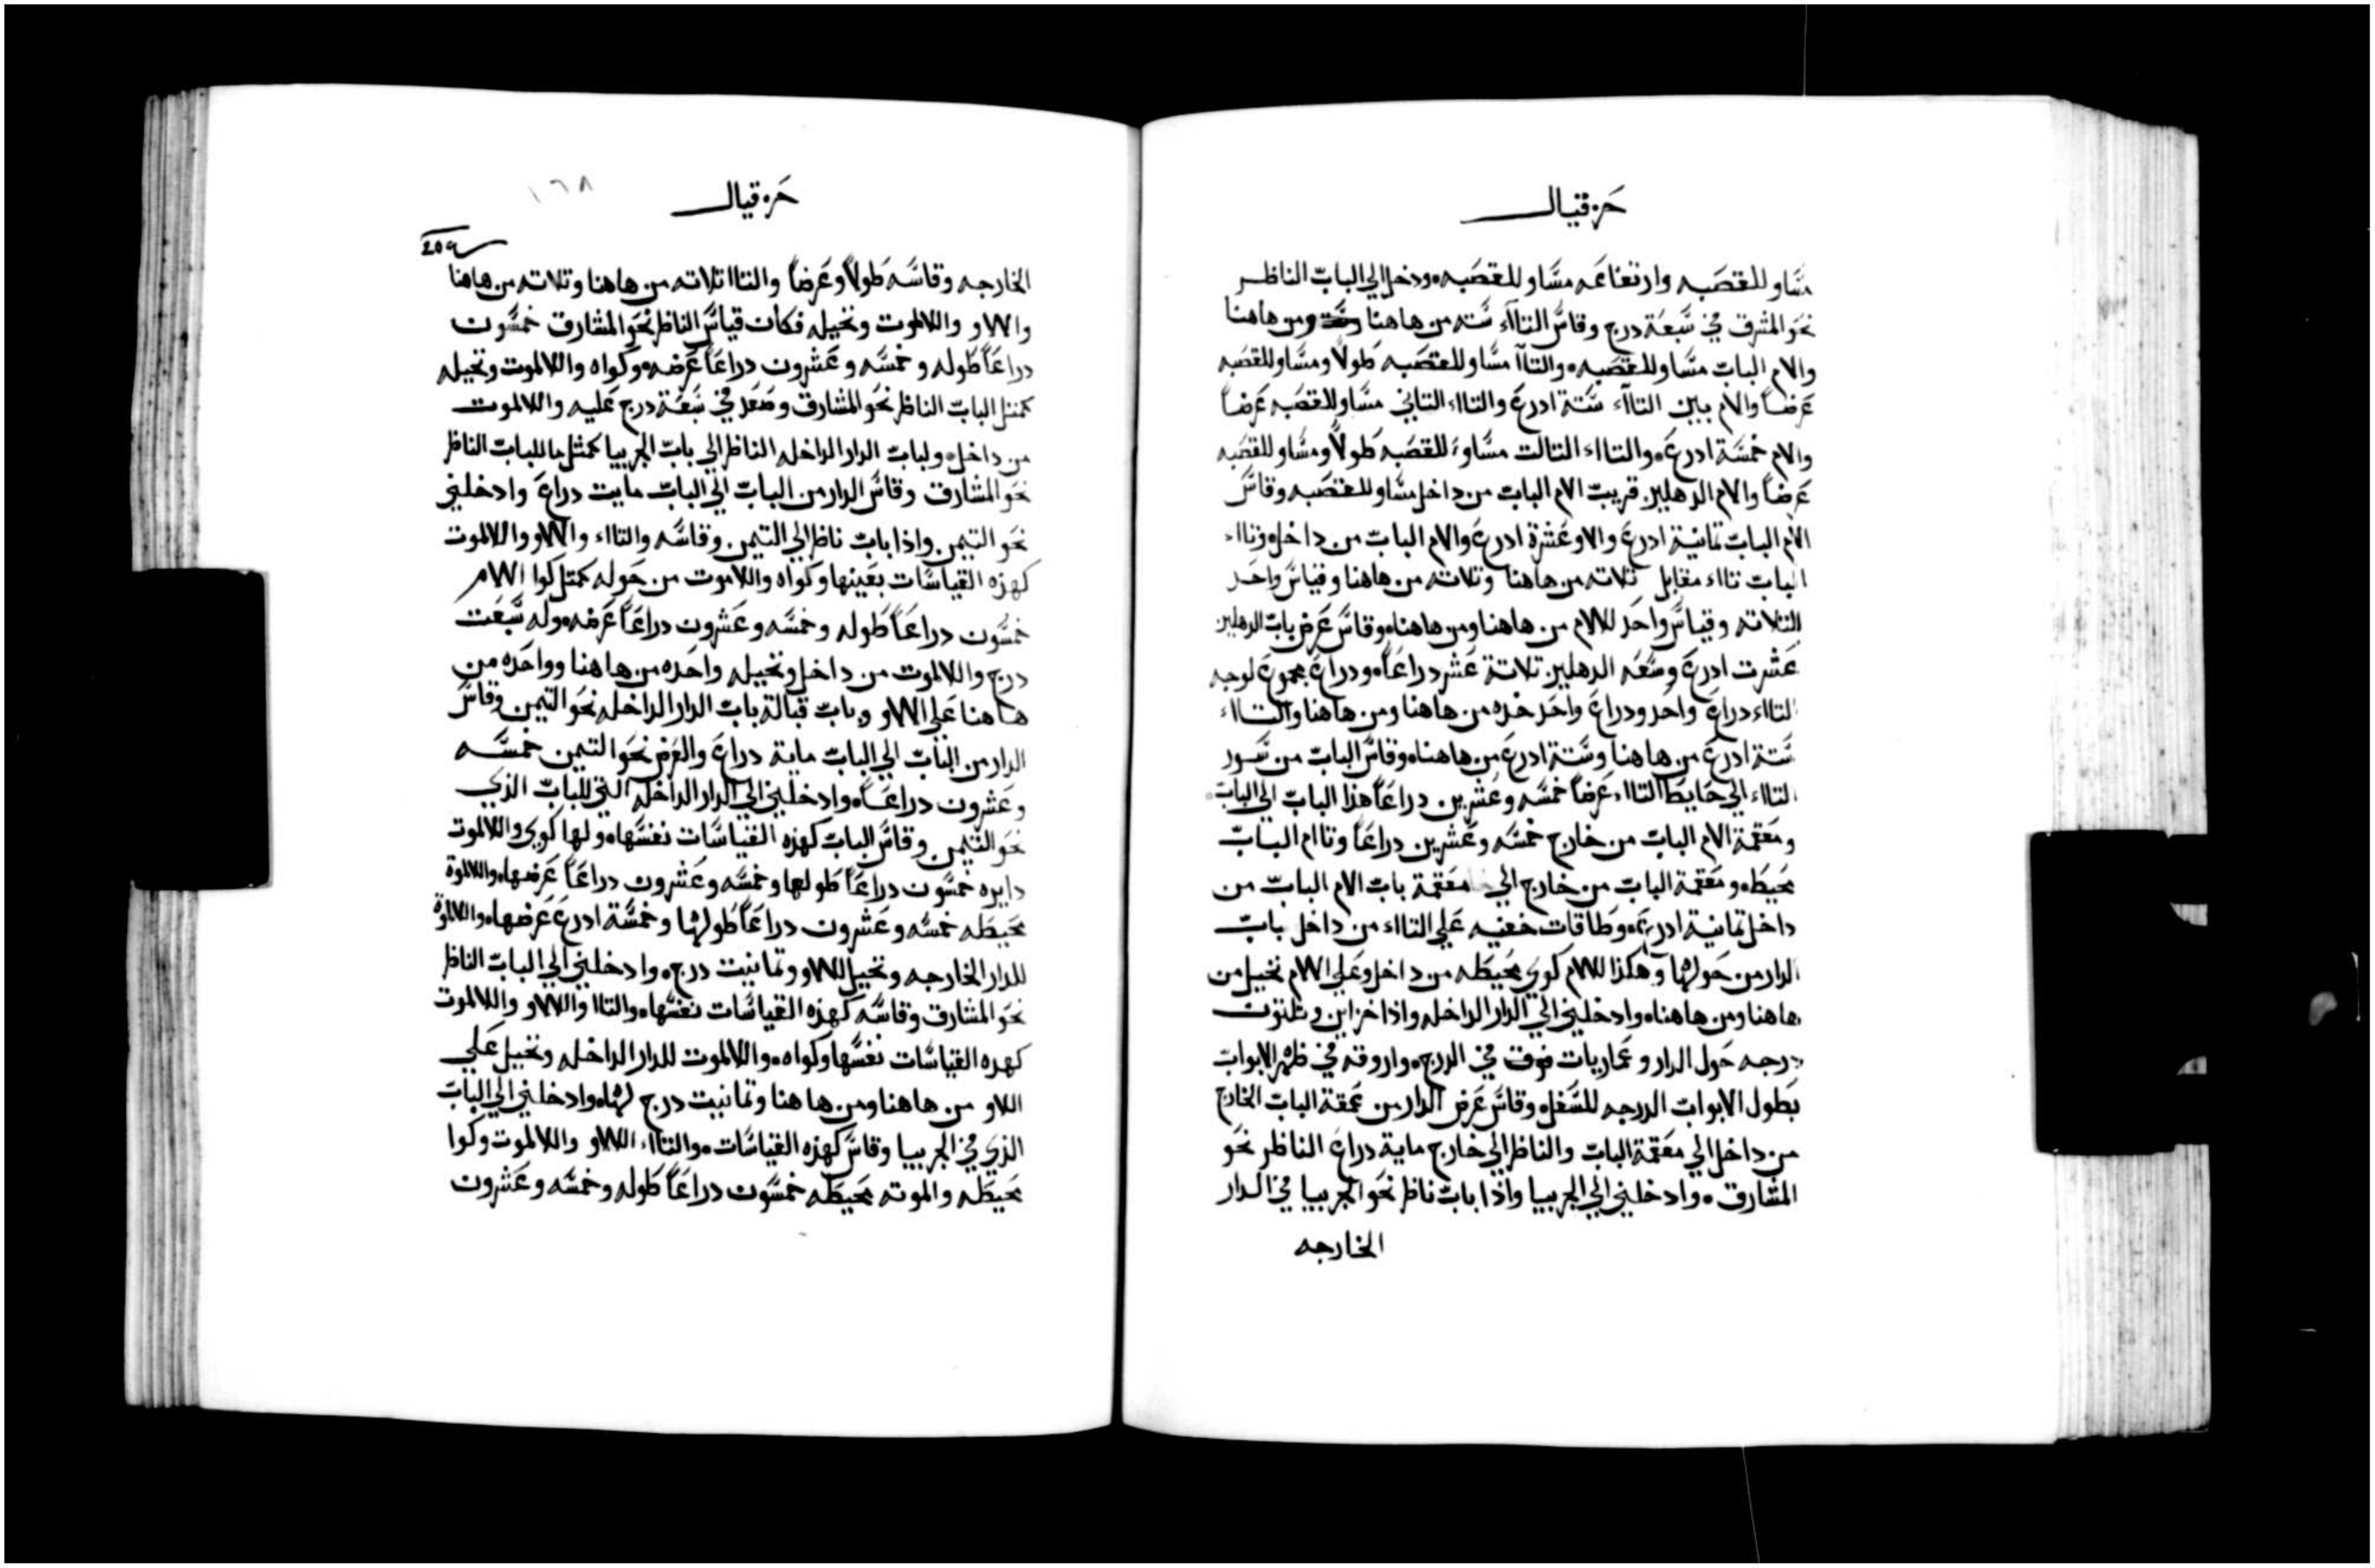 حزقيال
مساو للقصبه وارتفاعه مساو للقصبه ودخل الي الباب الناظر
نحو المشرق في سبعة درج وقاس التاآء سته من هاهنا ومن هاهنا
والام الباب مساو للقصبه والتاآ مساو للقصبه طولاً ومساو للقصبه
عرضاً والام بين التاآء ستة ادرع والتااء التاني مساو للقصبه عرضاً
والام خمسة ادرع والتااء التالت مساو للقصبه طولاً ومساو للقصبه
عرضاً والام الدهليز قريب الام الباب من داخل مساو للقصبه وقاس
الام الباب تمانية ادرع والاو عشرة ادرع والام الباب من داخل وتااء
الباب تااء مقابل تلاته من هاهنا وتلاته من هاهنا وقياس واحد
التلاته وقياس واحد للالام من هاهنا ومن هاهنا وقاس عرض باب الدهليز
عشرت ادرع وسعه الدهليز تلاتة عشر دراعاً ودراع مجموع لوجه
التااء دراع واحد ودراع واحد حده من هاهنا ومن هاهنا والتااء
ستة ادرع من هاهنا وستة ادرع من هاهنا وقاس الباب من سور
التااء الي حايط التااء عرضاً خمسه وعشرين دراعاً هذا الباب الي الباب
ومعقمة الام الباب من خارج خمسه وعشرين دراعاً وتاام الباب
محيطه ومعقمة الباب من خارج الي معقمة باب الام الباب من
داخل تمانية ادرع وطاقات خفيه علي التااء من داخل باب
الدار من حولها وهكذا للالام كوي محيطه من داخل وعلي الالام نخيل من
هاهنا ومن هاهنا وادخلني الي الدار الداخله واذا خزاين وتلتون
درجه حول الدار وعماريات فوق في الدرج واروقه في ظهر الابواب
بطول الابواب الدرجه للسفل وقاس عرض الدار من عمقة الباب الخارج
من داخل الي معقمة الباب والناظر الي خارج ماية دراع الناظر نحو
المشارق وادخلني الي الجربيا واذا باب ناظر نحو الجربيا في الدار
الخارجه
حزقيال
١٦٨
الخارجه وقاسه طولاً وعرضاً والتاا تلاته من هاهنا وتلاته من هاهنا
والالاو واللالموت ونخيله فكان قياس الناظر نحو المشارق خمسون
دراعاً طوله وخمسه وعشرون دراعاً عرضه وكواه واللالموت ونخيله
كمتل الباب الناظر نحو المشارق وصعد في سبعة درج عليه واللالموت
من داخل ولباب الدار الداخله الناظر الي باب الجربيا كمتل ما للباب الناظر
نحو المشارق وقاس الدار من الباب الي الباب مايت دراع وادخلني
نحو التيمن واذا باب ناظر الي التيمن وقاسه والتااء والالاو واللالموت
كهذه القياسات بعينها وكواه واللاموت من حوله كمتل كوا الالام
خمسون دراعاً طوله وخمسه وعشرون دراعاً عرضه وله سبعت
درج واللالموت من داخل ونخيله واحده من هاهنا وواحده من
هاهنا علي الالاو وباب قبالة باب الدار الداخله نحو التيمن وقاس
الدار من الباب الي الباب ماية دراع والعرض نحو التيمن خمسه
وعشرون دراعاً وادخلني الي الدار الداخله التي للباب الذي
نحو التيمن وقاس الباب كهذه القياسات نفسها ولها كوي واللالموت
دايره خمسون دراعاً طولها وخمسه وعشرون دراعاً عرضها واللالموة
محيطه خمسه وعشرون دراعاً طولها وخمسة ادرع عرضها واللالموة
للدار الخارجه ونخيل للالاو وتمانيت درج وادخلني الي الباب الناظر
نحو المشارق وقاسه كهذه القياسات نفسها والتاا والالاو واللالموت
كهده القياسات نفسها وكواه واللالموت للدار الداخله ونخيل علي
اللاو من هاهنا ومن هاهنا وتمانيت درج لها وادخلني الي الباب
الذي في الجربيا وقاس كهذه القياسات والتااء الالاو واللالموت وكوا
محيطه والموته محيطه خمسون دراعاً طوله وخمسه وعشرون